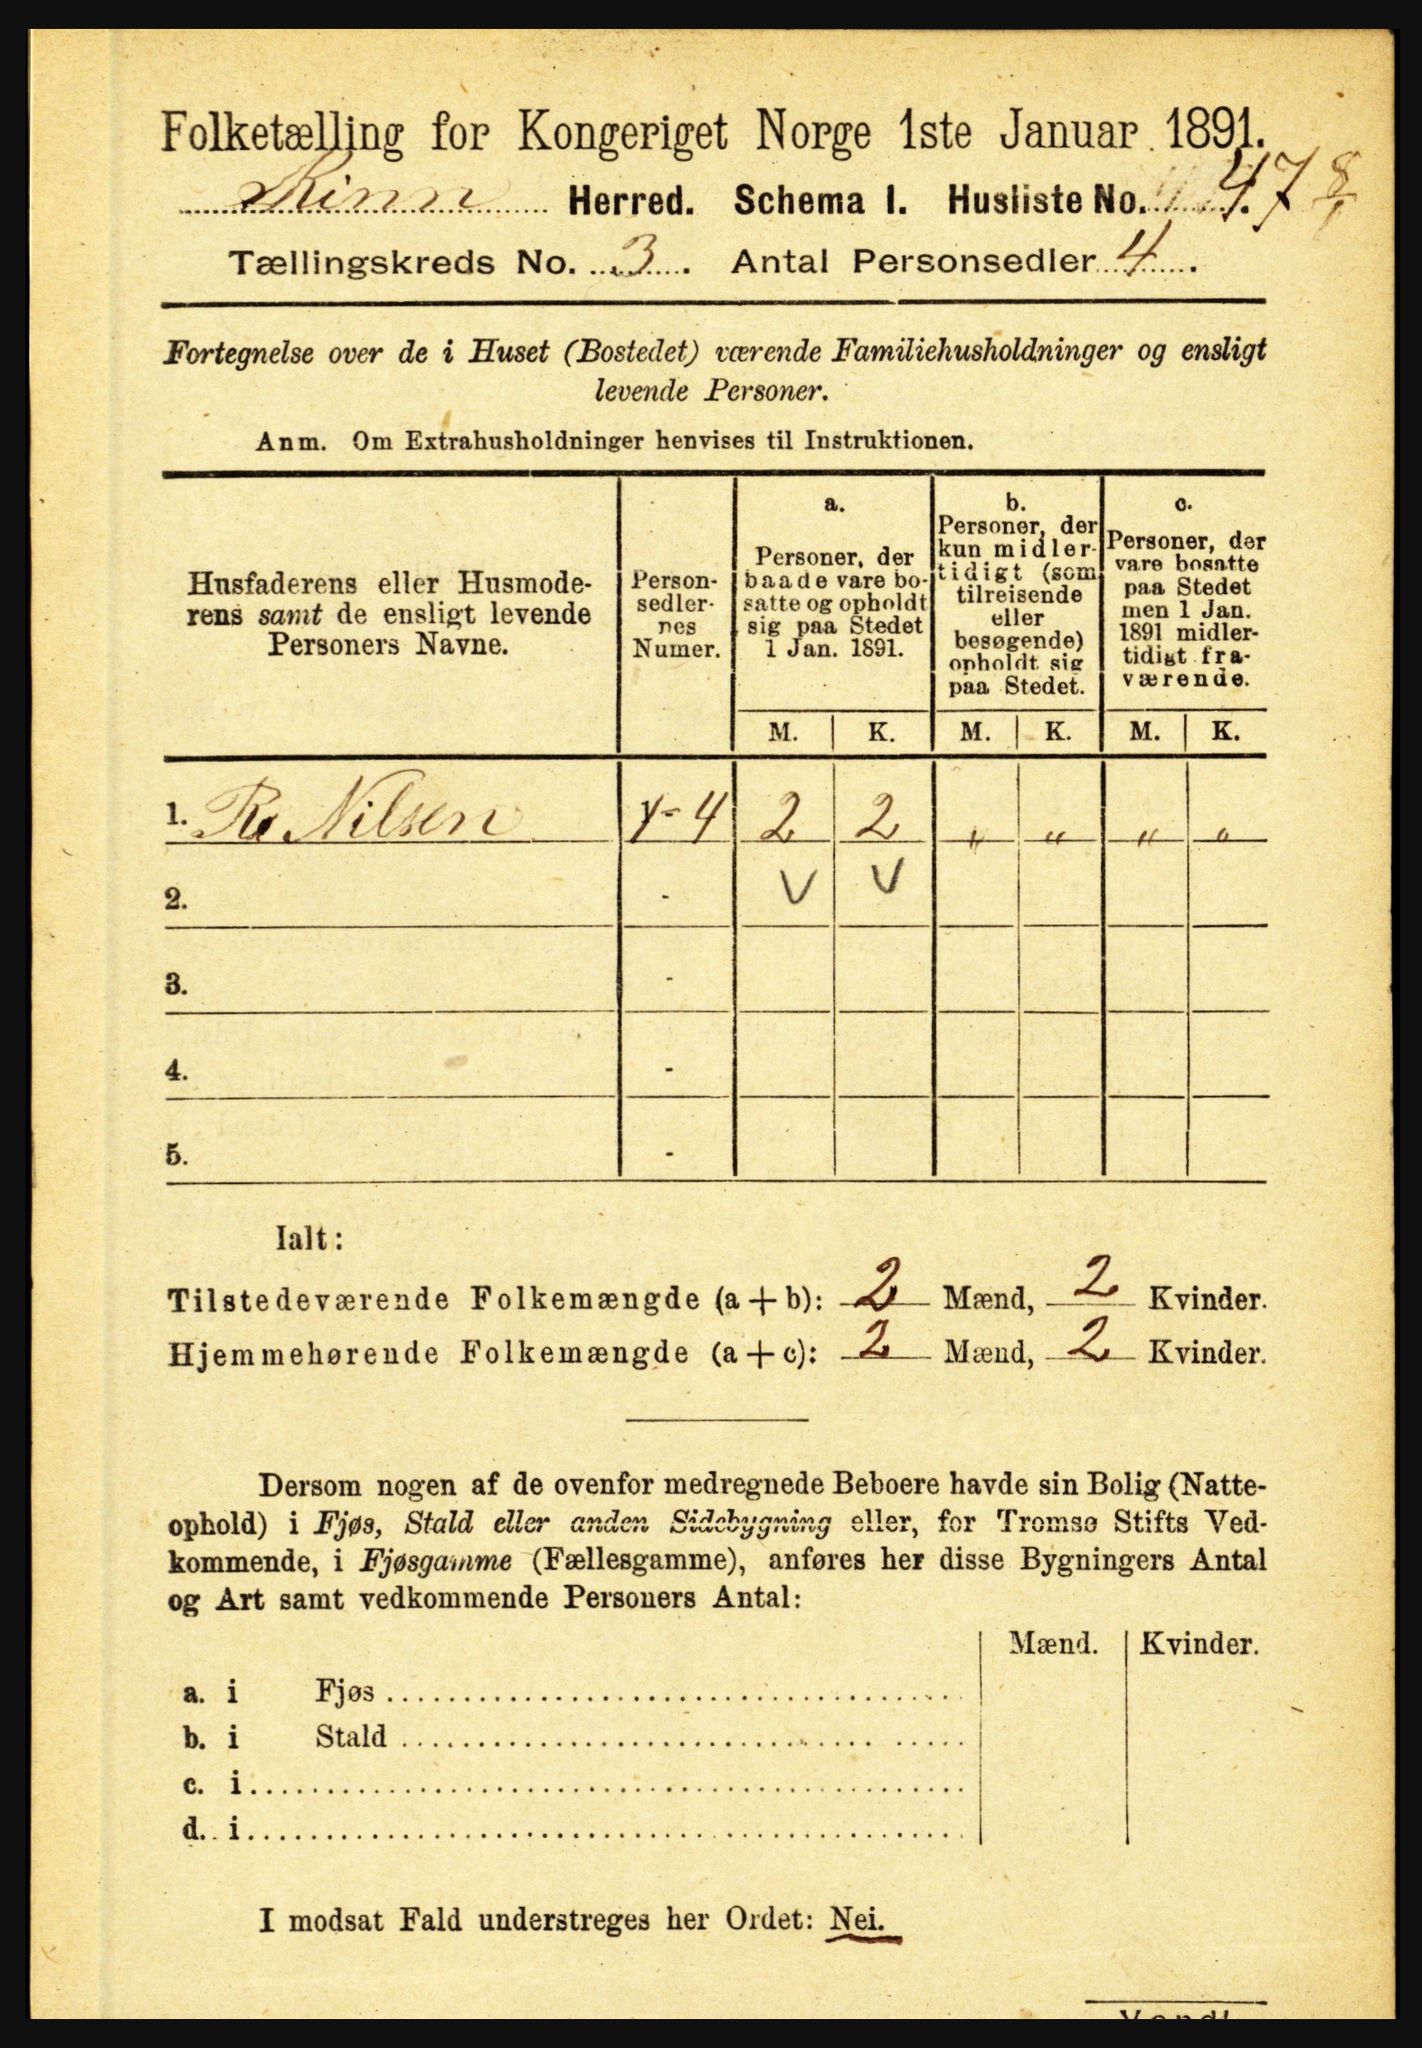 Folketælling for Kongeriget Norge 1ste Januar 1891.
Kinn Herred. Schema I. Husliste No. 47
Tællingskreds No. 3. Antal Personsedler 4.
Fortegnelse over de i Huset (Bostedet) værende Familiehusholdninger og ensligt
levende Personer.
Anm. Om Extrahusholdninger henvises til Instruktionen.
Husfaderens eller Husmode-
rens samt de ensligt levende
Personers Navne.
Person-
sedler-
nes
Numer.
a.
Personer, der
baade vare bo-
satte og opholdt
sig paa Stedet
1 Jan. 1891.
b.
Personer, der
kun midler-
tidigt (som
tilreisende
eller
besøgende)
opholdt sig
paa Stedet.
c.
Personer, der
vare bosatte
paa Stedet
men 1 Jan.
1891 midler-
tidigt fra-
værende.
M. K. M. K. M. K.
1. Nilsen 1-4 2 2 " " " "
2. - V V
3. -
4. -
5. -
Ialt:
Tilstedeværende Folkemængde (a+b): 2 Mænd, 2 Kvinder.
Hjemmehørende Folkemængde (a+c): 2 Mænd, 2 Kvinder.
Dersom nogen af de ovenfor medregnede Beboere havde sin Bolig (Natte-
ophold) i Fjøs, Stald eller anden Sidebygning eller, for Tromsø Stifts Ved-
kommende, i Fjøsgamme (Fællesgamme), anføres her disse Bygningers Antal
og Art samt vedkommende Personers Antal:
Mænd. Kvinder.
a. i Fjøs
b. i Stald
c. i
d. i
I modsat Fald understreges her Ordet: Nei.